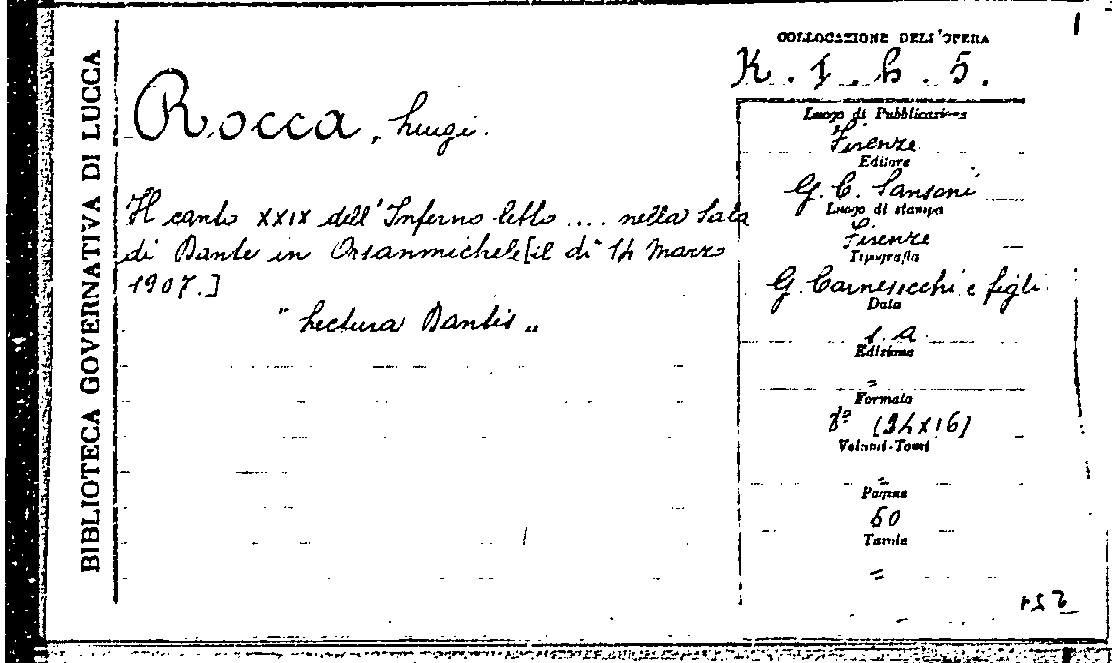 BIBLIOTECA GOVERNATIVA DI LUCCA
Rocca, Luigi.
Il canto XXIX dell'Inferno letto .... nella Sala
di Dante in Orsanmichele [il dì 14 Marzo
1907.]
"Lectura Dantis"
COLLOCAZIONE DELL'OPERA
K. 1. b. 5.
Luogo di Pubblicazione
Firenze
Editore
G. C. Sansoni
Luogo di stampa
Firenze
Tipografia
G. Carnesecchi e figli
Data
s. a.
Edizione
=
Formato
8º (24x16)
Volumi-Tomi
=
Pagine
50
Tavole
=